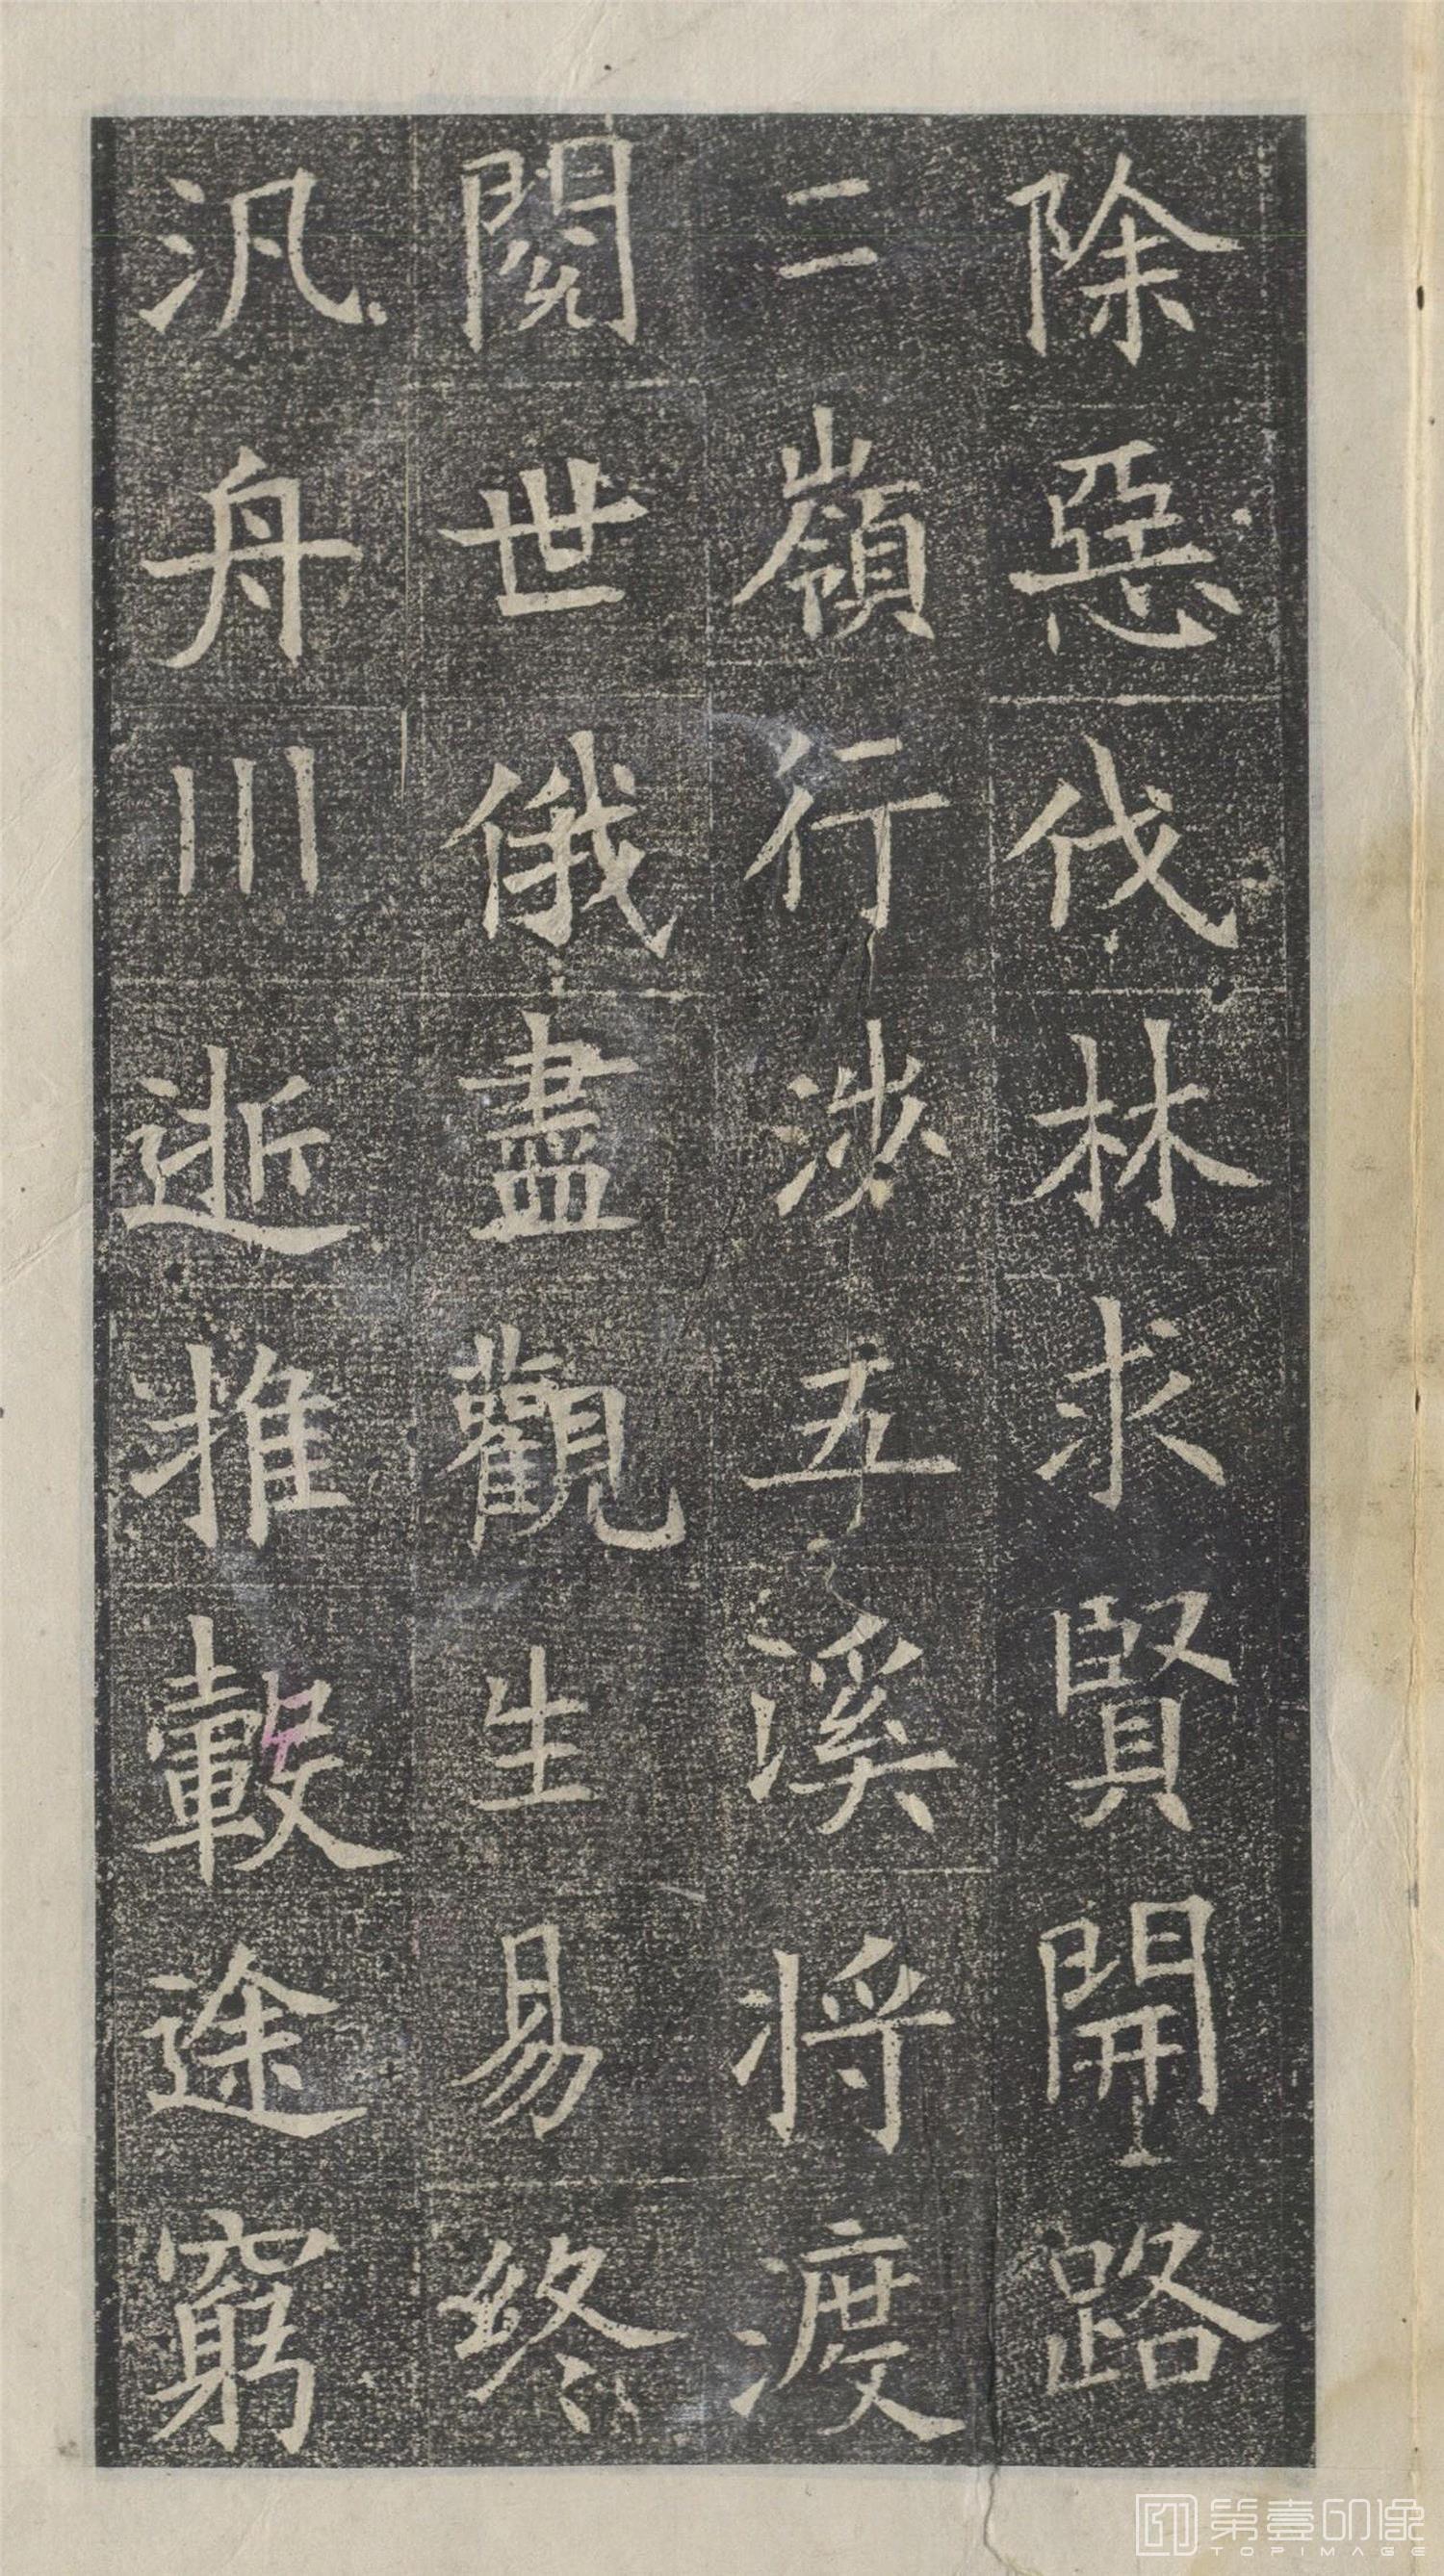 除惡伐林求賢開路
二嶺行涉五溪將渡
閱世俄盡觀生易終
汎舟川逝推轂途窮
第壹印像
TOPIMAGE